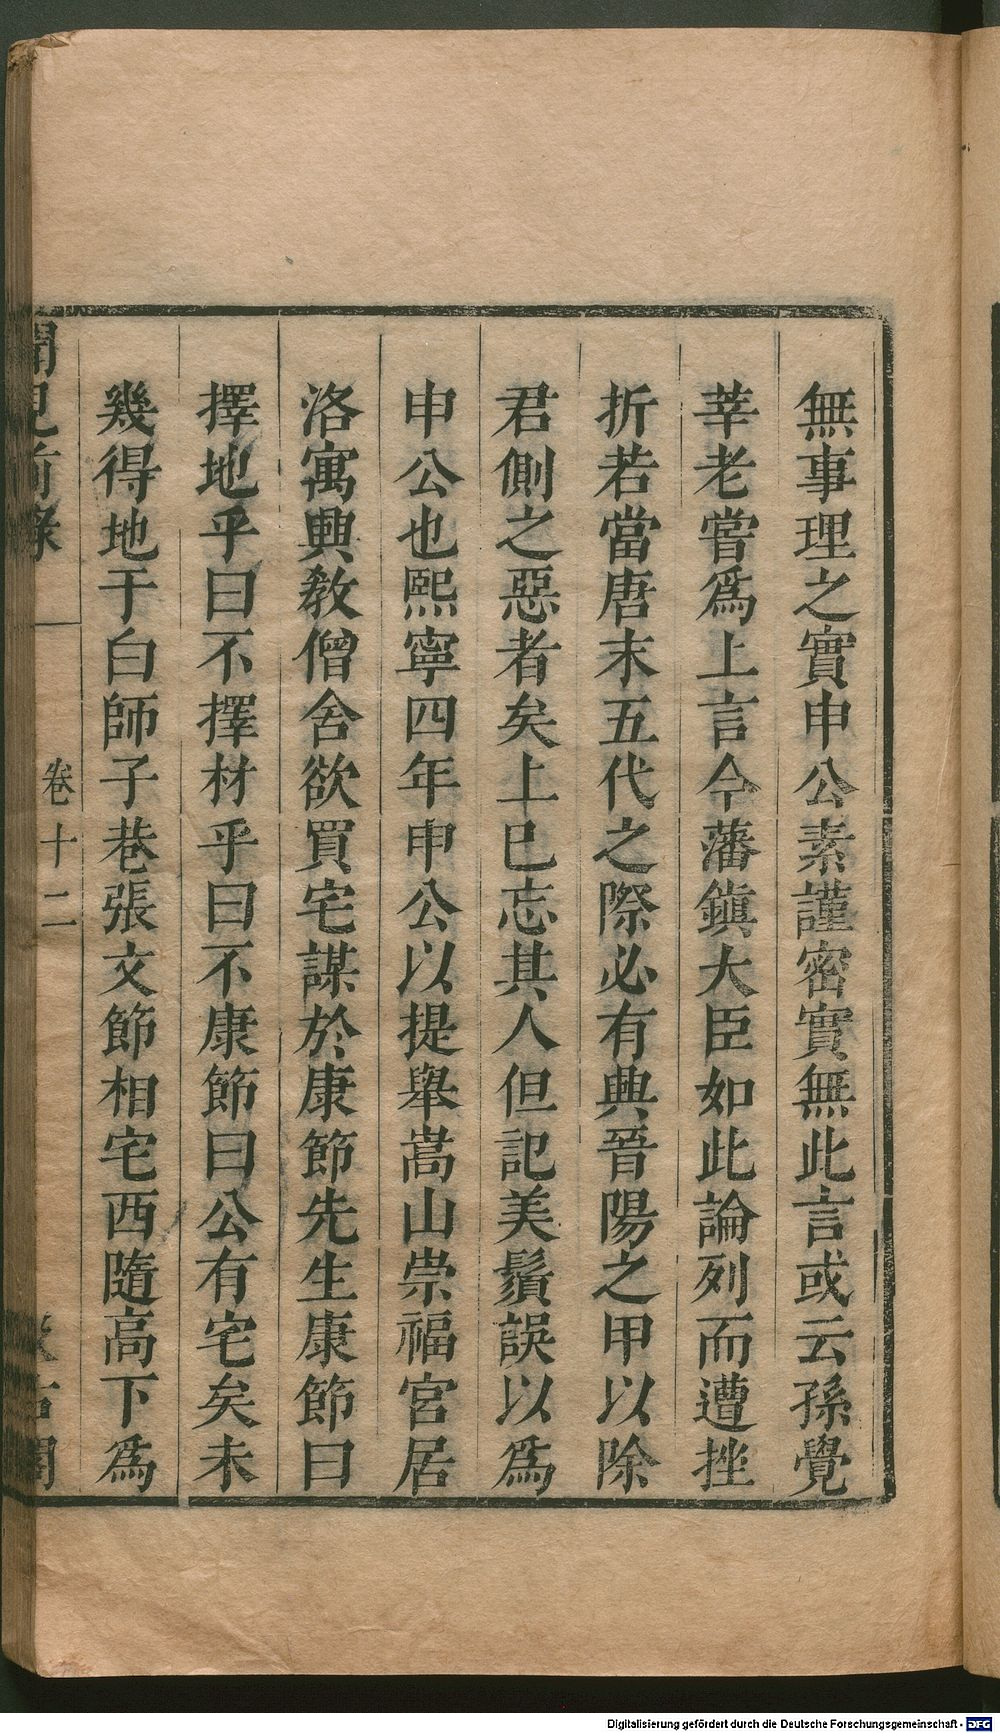 無事理之實申公素謹密實無此言或云孫覺
莘老嘗爲上言今藩鎭大臣如此論列而遭挫
折若當唐末五代之際必有興晉陽之甲以除
君側之惡者矣上已忘其人但記美鬚誤以爲
申公也熙寧四年申公以提舉嵩山崇福宮居
洛寓興教僧舍欲買宅謀於康節先生康節曰
擇地乎曰不擇材乎曰不康節曰公有宅矣未
幾得地于白師子巷張文節相宅西隨高下爲
聞見前錄
卷十二
汲古閣
Digitalisierung gefördert durch die Deutsche Forschungsgemeinschaft - DFG